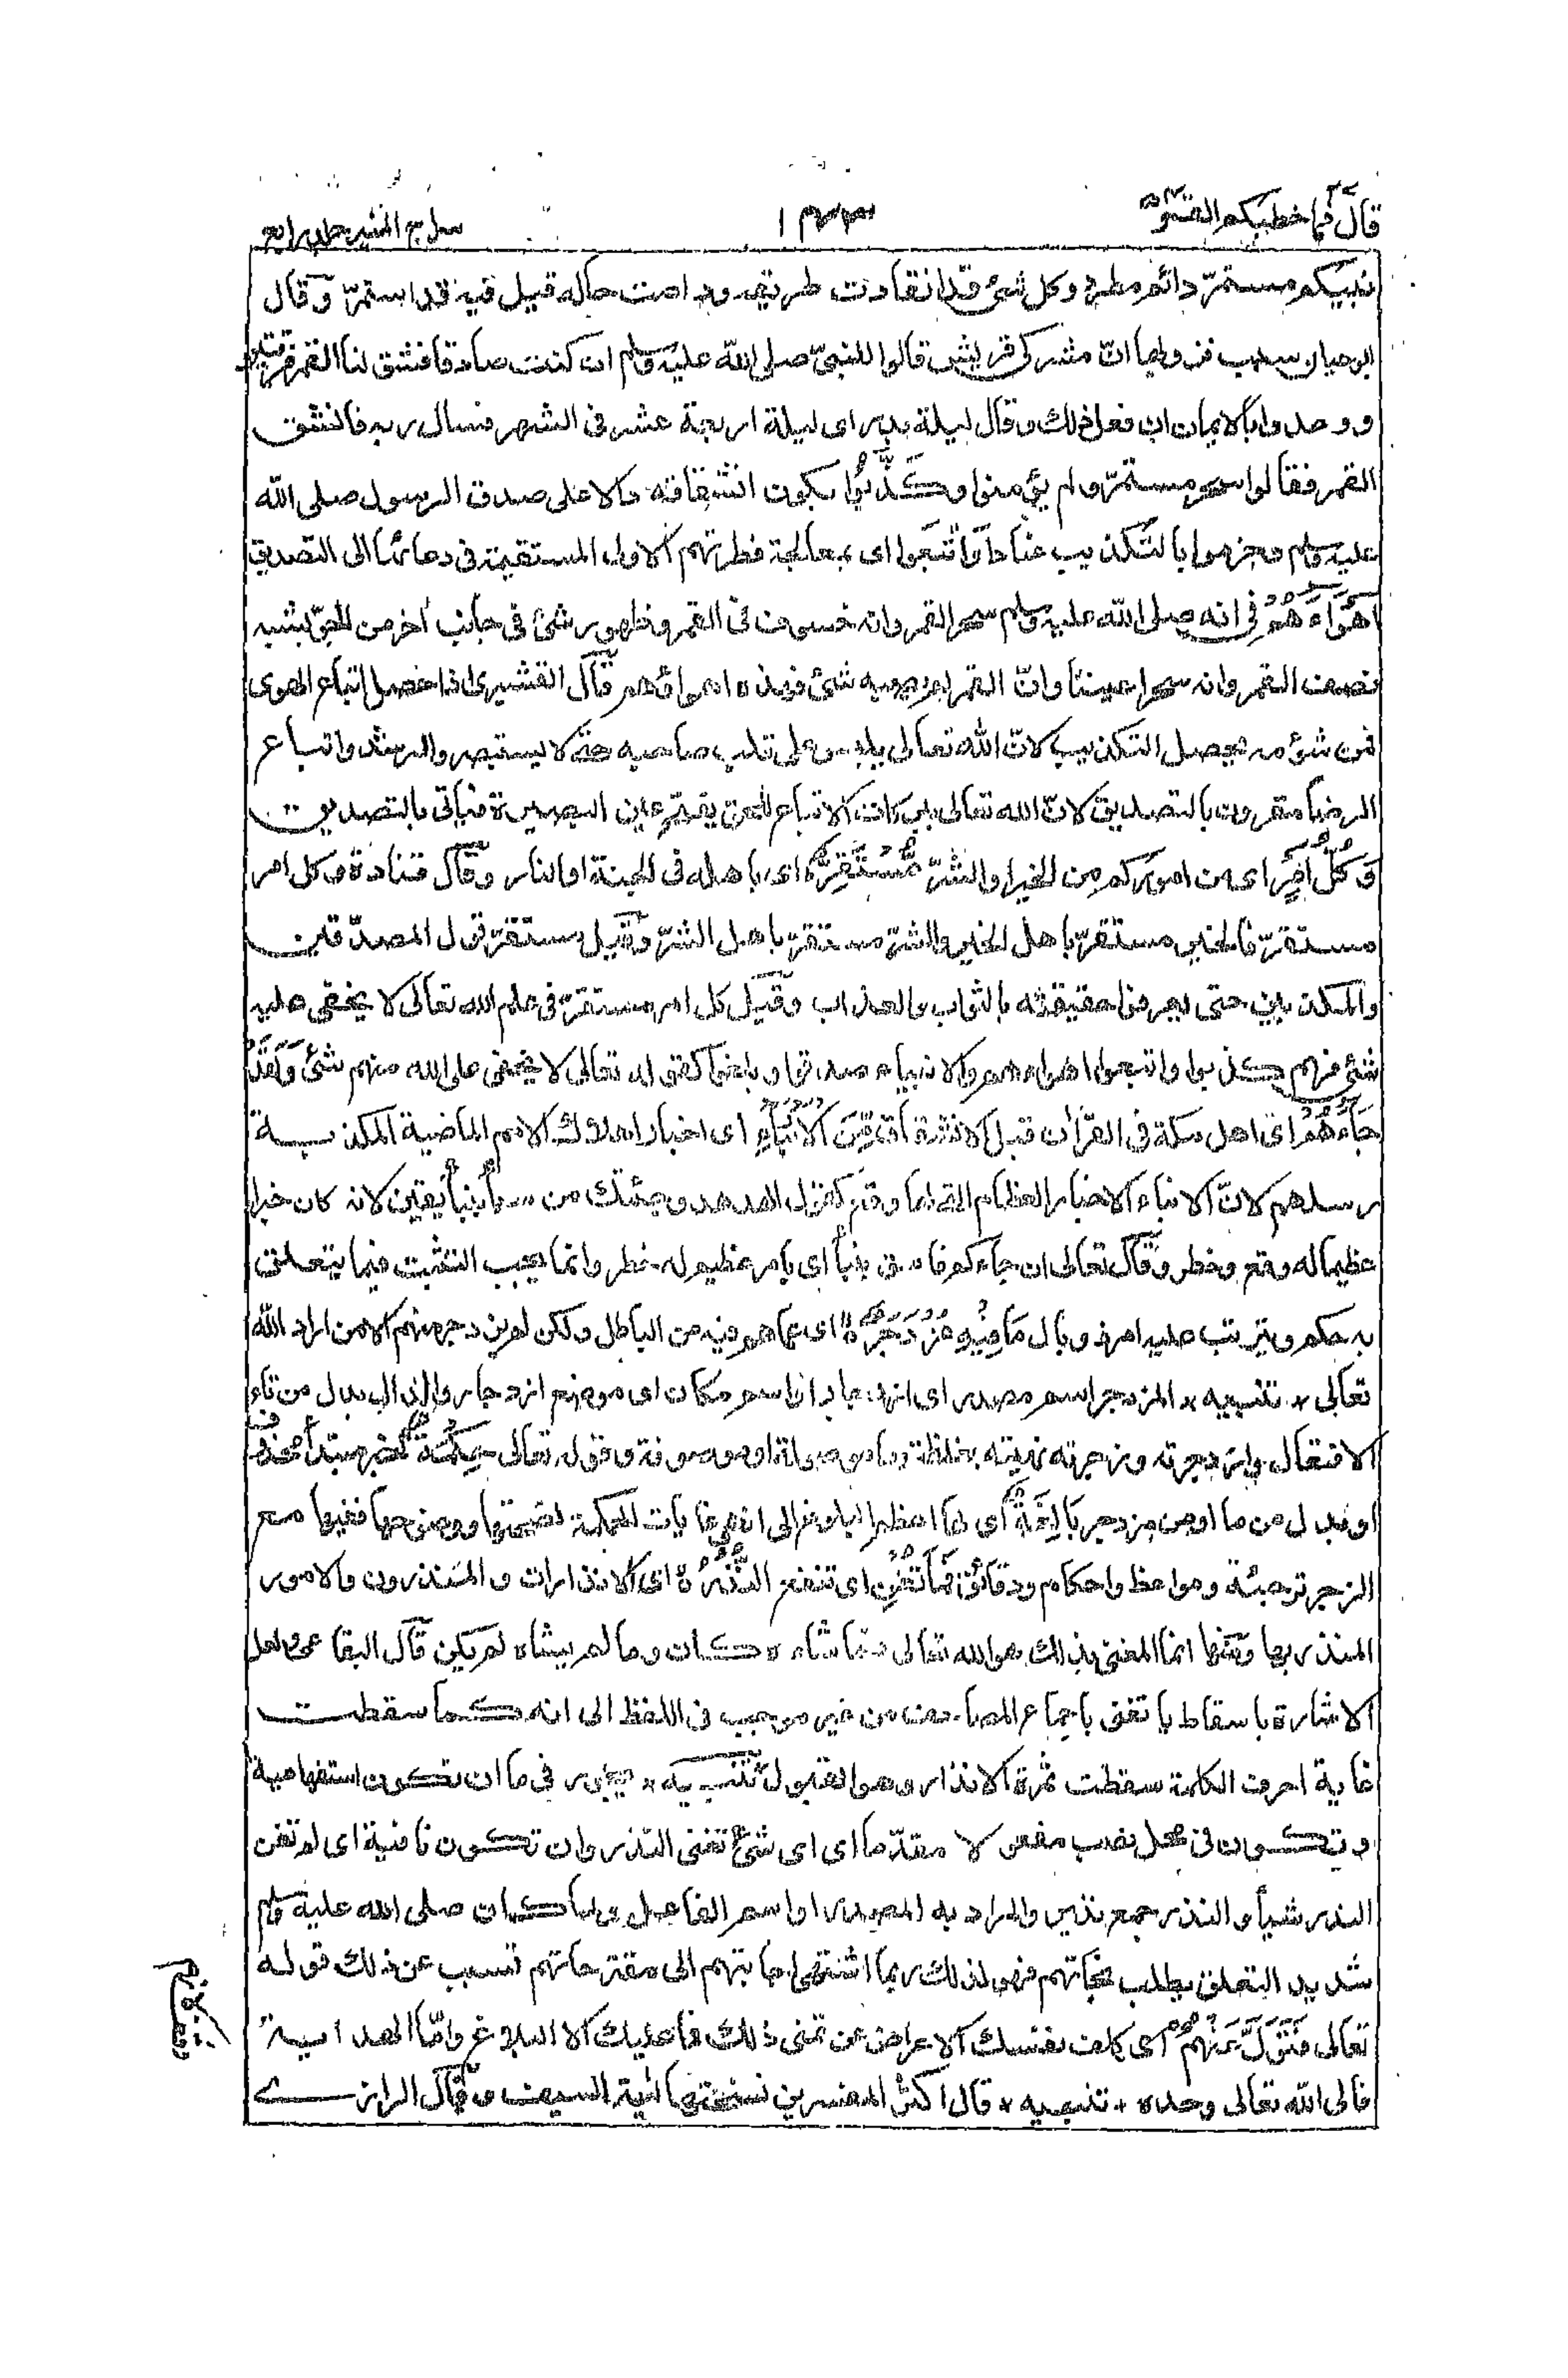 قال فما خطبكم القمر ١٣٣ سراج المنير جلد رابع
نبيكم مستمرّ دائم مطرد وكل شئ قد انقادت طريقته ودامت حاله قيل فيه قد استمرّ وقال
ابو حيان سبب نزولها انّ مشركى قريش قالوا للنبىّ صلى الله عليه وسلم ان كنت صادقا فشق لنا القمر فرقتين
ووعدوا بالايمان ان فعل ذلك وقال ليلة بدر اى ليلة اربعة عشر فى الشهر فسال ربه فانشق
القمر فقالوا سحر مستمرّ ولم يؤمنوا وَكَذَّبُوْا بكون انشقاقه دالا على صدق الرسول صلى الله
عليه وسلم وجزموا بالتكذيب عنادا وَاتَّبَعوا اى بمعالجة فطرتهم الاولى المستقيمة فى دعائها الى التصديق
اَهْوَاءَهُمْ فى انه صلى الله عليه وسلم سحر القمر وانه خسوف فى القمر وظهور شئ فى جانب اخر من الجوّ يشبه
نصف القمر وانه سحر اعيننا وانّ القمر لم يصبه شئ فهذه اهواؤهم قال القشيرى اذا حصل اتباع الهوى
فمن شؤمه يحصل التكذيب لانّ الله تعالى يلبس على قلب صاحبه حتى لا يستبصر والرشد واتباع
الرضا مقرون بالتصديق لانّ الله تعالى ببركات الاتباع للحق يفتح عين البصيرة فياتى بالتصديق
وَكُلُّ اَمْرٍ اى من اموركم من الخير والشرّ مُّسْتَقِرٌّ اى باهله فى الجنة او النار وقال قتادة وكل امر
مستقرّ فالخير مستقرّ باهل الخير والشرّ مستقرّ باهل الشرّ وقيل مستقرّ قول المصدّقين
والمكذبين حتى يعرفوا حقيقته بالثواب والعذاب وقيل كل امر مستقرّ فى علم الله تعالى لا يخفى عليه
شئ فهم كذبوا واتبعوا اهواءهم والانبياء صدقوا وبلغوا كقوله تعالى لا يخفى على الله منهم شئ وَلَقَدْ
جَاءَهُمْ اى اهل مكة فى القراٰن قبل الانشقاق مِّنَ الْاَنْبَاءِ اى اخبار اهلاك الامم الماضية المكذبة
رسلهم لانّ الانباء الاخبار العظام التى لها وقع كقول الهدهد وجئتك من سبأ بنبأ يقين لانه كان خبرا
عظيما له وقع وخطر وقال تعالى ان جاءكم فاسق بنبأ اى بامر عظيم له خطر وانما يجب التثبت فيما يتعلق
به حكم ويترتب عليه امر ذو بال مَا فِيْهِ مُزْدَجَرٌ اى عما هم فيه من الباطل ولكن لم يزدجر منهم الا من اراد الله
تعالى * تنبيه * المزدجر اسم مصدر اى ازدجار او اسم مكان اى موضع ازدجار والدال بدل من تاء
الافتعال وازدجرته وزجرته نهيته بغلظة وما موصولة او موصوفة وقوله تعالى حِكْمَةٌ خبر مبتدأ محذوف
او بدل من ما او من مزدجر بَالِغَةٌ اى لها اعظم البلوغ الى انتهى غايات الحكمة لصحتها ووضوحها ففيها مع
الزجر ترجئة ومواعظ واحكام ودقائق فَمَا تُغْنِ اى تنفع النُّذُرُ اى الانذارات والمنذرون والامور
المنذر بها وقتها انما المغنى بذلك هو الله تعالى فما شاءه كان وما لم يشاه لم يكن قال البقاعى ولعل
الاشارة باسقاط يا تغنى باجماع المصاحف من غير موجب فى اللفظ الى انه كما سقطت
غاية احرف الكلمة سقطت ثمرة الانذار وهو القبول تنبيه * يجوز فى ما ان تكون استفهامية
وتكون فى محل نصب مفعولا مقدّما اى اى شئ تغنى النذر وان تكون نافية اى لم تغن
النذر شيأ والنذر جمع نذير والمراد به المصدر او اسم الفاعل ولما كان صلى الله عليه وسلم
شديد التعلق بطلب نجاتهم فهو لذلك ربما اشتهى اجابتهم الى مقترحاتهم تسبب عن ذلك قوله
تعالى فَتَوَلَّ عَنْهُمْ اى كلف نفسك الاعراض عن تمنى ذلك فما عليك الا البلاغ وامّا الهداية
فالى الله تعالى وحده * تنبيه * قال اكثر المفسرين نسختها اٰية السيف وقال الرازى